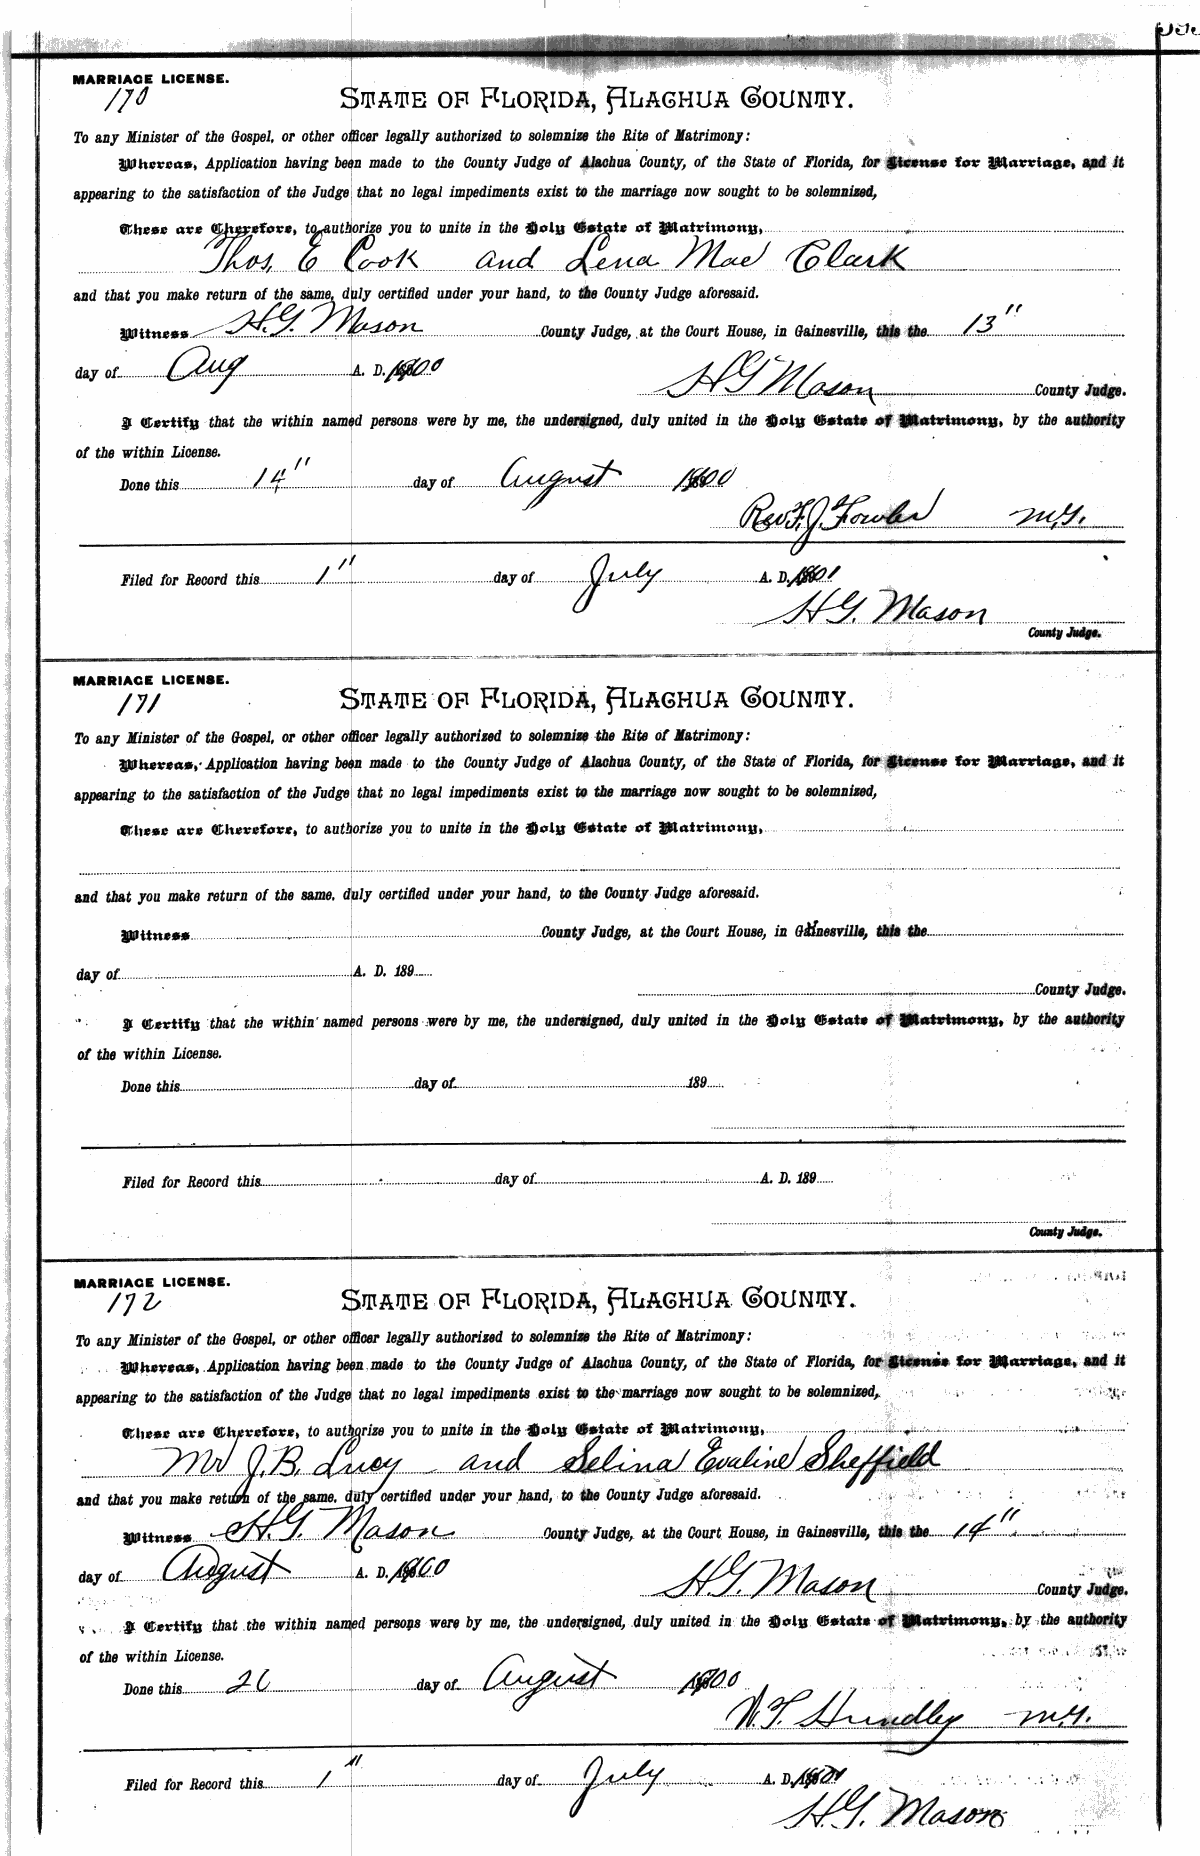 MARRIAGE LICENSE.
170
STATE OF FLORIDA, ALACHUA COUNTY.
To any Minister of the Gospel, or other officer legally authorized to solemnize the Rite of Matrimony:
Whereas, Application having been made to the County Judge of Alachua County, of the State of Florida, for License for Marriage, and it
appearing to the satisfaction of the Judge that no legal impediments exist to the marriage now sought to be solemnized,
These are Therefore, to authorize you to unite in the Holy Estate of Matrimony,
Thos. E Cook and Lena Mae Clark
and that you make return of the same, duly certified under your hand, to the County Judge aforesaid.
Witness H.G. Mason County Judge, at the Court House, in Gainesville, this the 13"
day of Aug A. D. 1900
H G Mason County Judge.
I Certify that the within named persons were by me, the undersigned, duly united in the Holy Estate of Matrimony, by the authority
of the within License.
Done this 14" day of August 1900
Rev F. J. Fowler M.G.
Filed for Record this 1" day of July A. D. 1901
H G. Mason
County Judge.
MARRIAGE LICENSE.
171
STATE OF FLORIDA, ALACHUA COUNTY.
To any Minister of the Gospel, or other officer legally authorized to solemnize the Rite of Matrimony:
Whereas, Application having been made to the County Judge of Alachua County, of the State of Florida, for License for Marriage, and it
appearing to the satisfaction of the Judge that no legal impediments exist to the marriage now sought to be solemnized,
These are Therefore, to authorize you to unite in the Holy Estate of Matrimony,
and that you make return of the same, duly certified under your hand, to the County Judge aforesaid.
Witness County Judge, at the Court House, in Gainesville, this the
day of A. D. 189
County Judge.
I Certify that the within named persons were by me, the undersigned, duly united in the Holy Estate of Matrimony, by the authority
of the within License.
Done this day of 189
Filed for Record this day of A. D. 189
County Judge.
MARRIAGE LICENSE.
172
STATE OF FLORIDA, ALACHUA COUNTY.
To any Minister of the Gospel, or other officer legally authorized to solemnize the Rite of Matrimony:
Whereas, Application having been made to the County Judge of Alachua County, of the State of Florida, for License for Marriage, and it
appearing to the satisfaction of the Judge that no legal impediments exist to the marriage now sought to be solemnized,
These are Therefore, to authorize you to unite in the Holy Estate of Matrimony,
Mr J. B. Lucy and Selina Evaline Sheffield
and that you make return of the same, duly certified under your hand, to the County Judge aforesaid.
Witness H. G. Mason County Judge, at the Court House, in Gainesville, this the 14"
day of August A. D. 1900
H G. Mason County Judge.
I Certify that the within named persons were by me, the undersigned, duly united in the Holy Estate of Matrimony, by the authority
of the within License.
Done this 26 day of August 1900
Hundley M.G.
Filed for Record this 1" day of July A. D. 1901
H. G. Mason